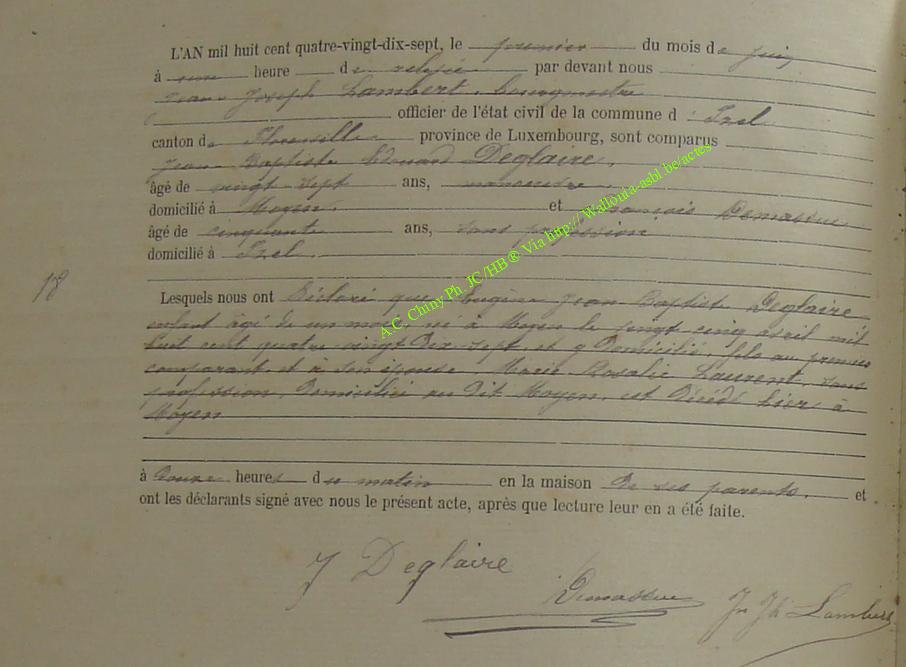 L'AN mil huit cent quatre-vingt-dix-sept, le premier du mois de juin
à une heure de relevée par devant nous
Jean Joseph Lambert, bourgmestre
officier de l'état civil de la commune d' Izel
canton de Florenville province de Luxembourg, sont comparus
Jean Baptiste Edouard Deglaire,
âgé de vingt sept ans, manoeuvre,
domicilié à Moyen, et François Demasseu
âgé de cinquante ans, sans profession
domicilié à Izel
18
Lesquels nous ont déclaré que Eugène Jean Baptist Deglaire
enfant âgé de un mois, né à Moyen le vingt cinq avril mil
huit cent quatre vingt dix-sept, et y domicilié, fils au premier
comparant et à son épouse, Marie Rosalie Laurent, sans
profession, domiciliée au dit Moyen, est décédé hier à
Moyen
à douze heures du matin en la maison de ses parents, et
ont les déclarants signé avec nous le présent acte, après que lecture leur en a été faite.
J Deglaire
Jn Jh Lambert
A.C. Chiny Ph. JC/HB ® Via http://Wallonia-asbl.be/actes